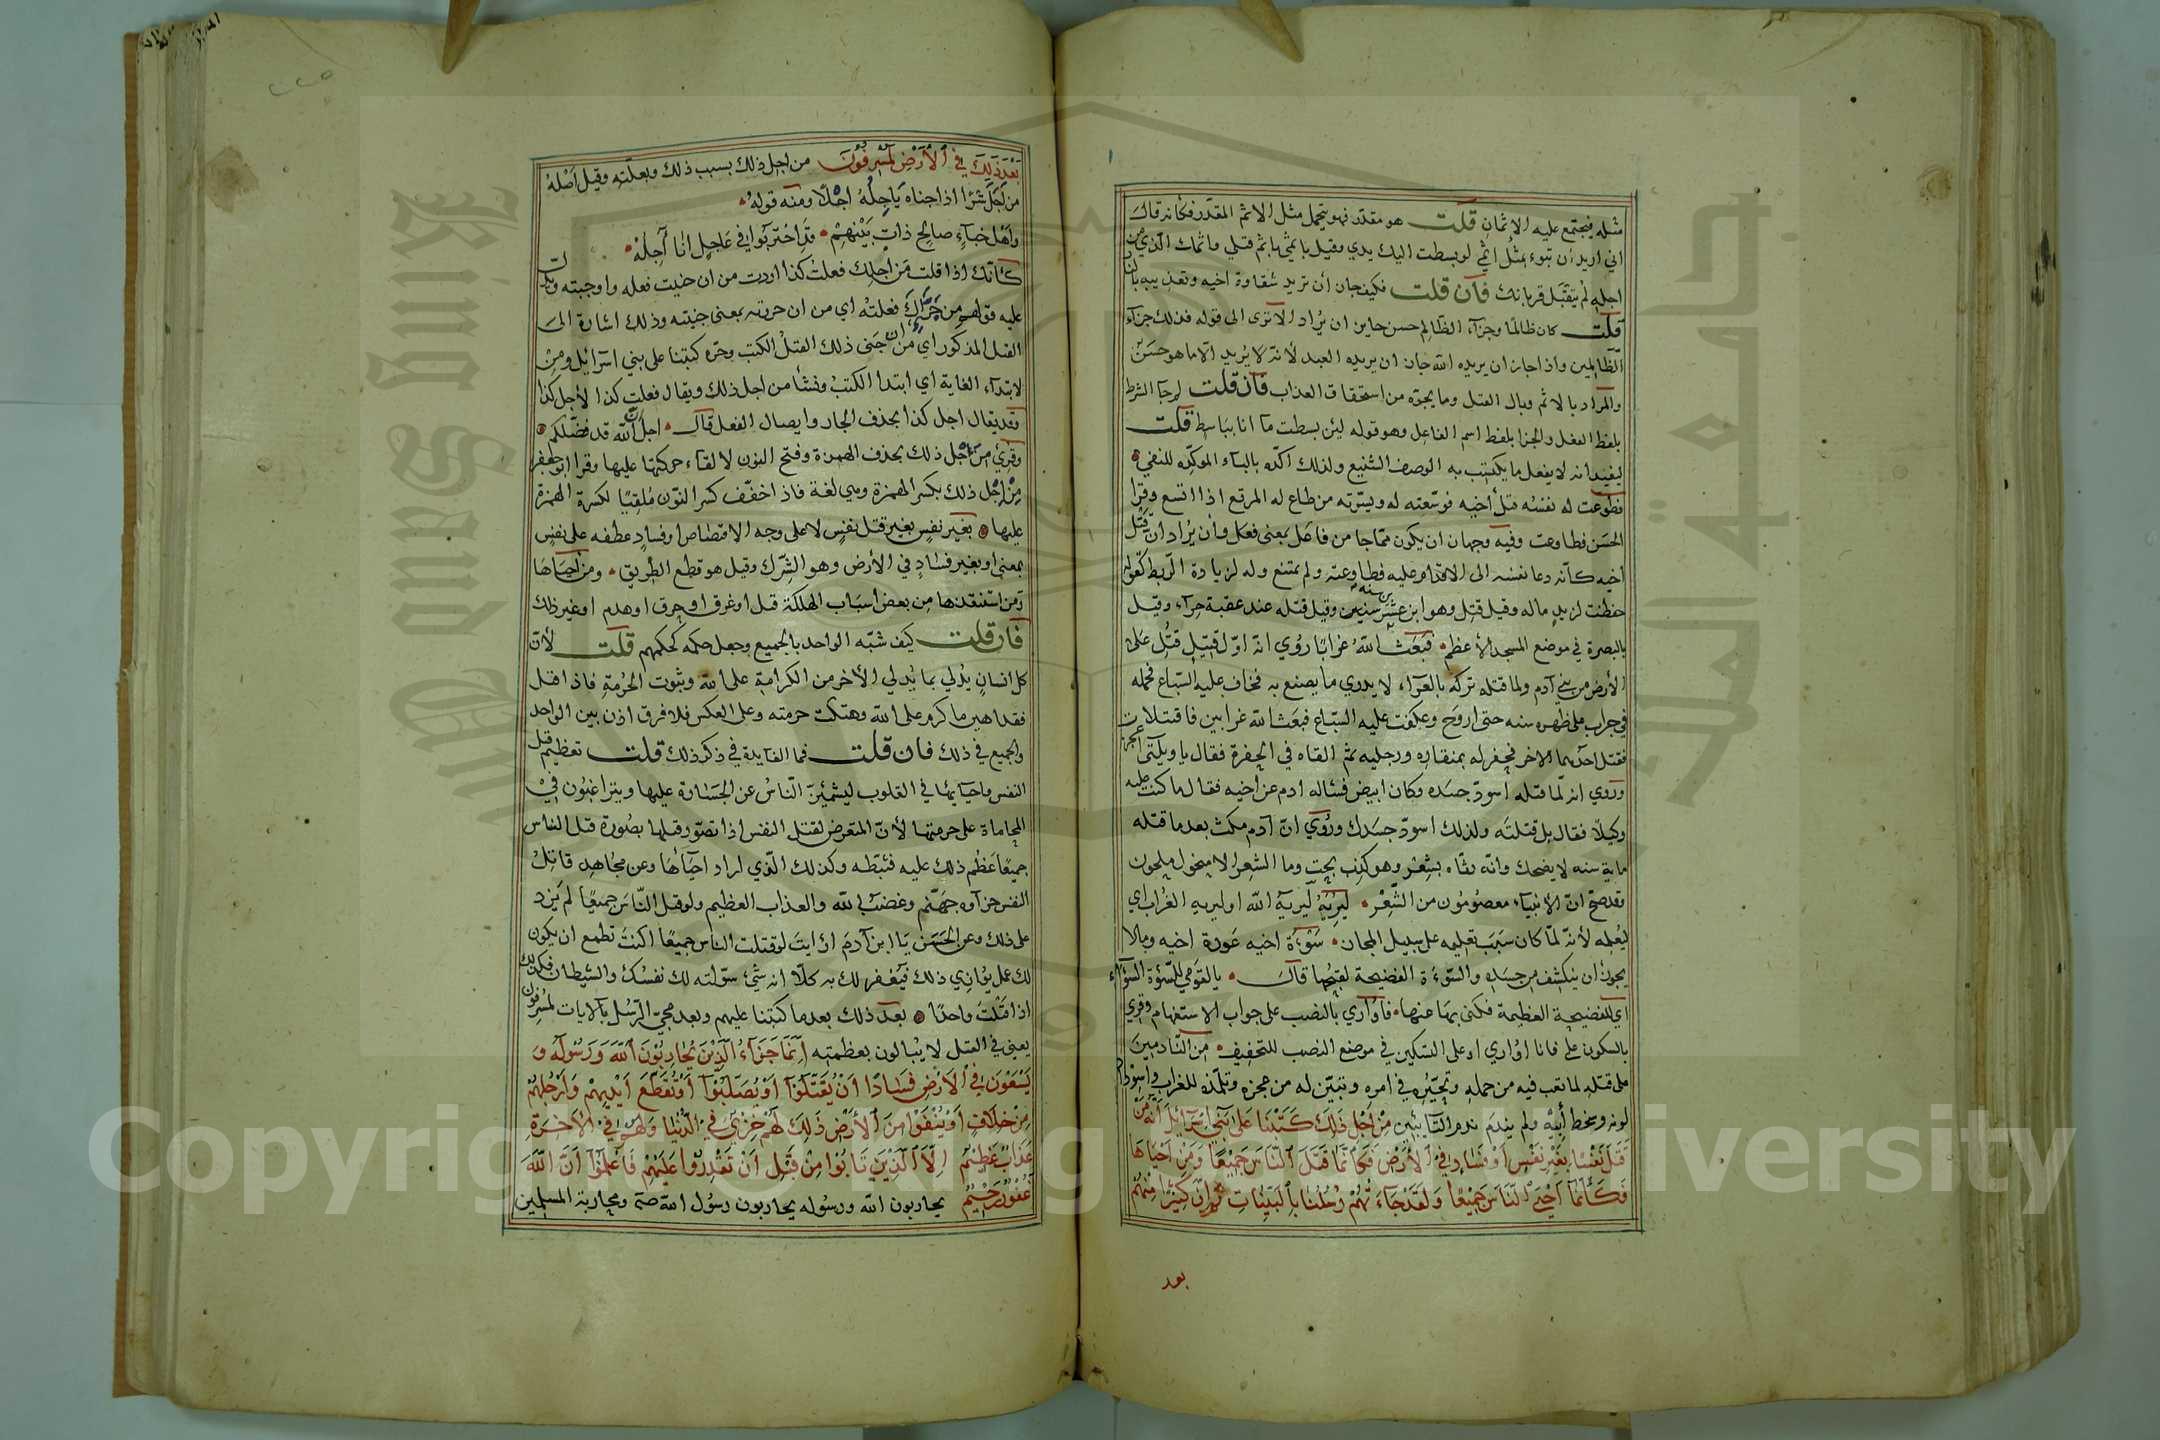 مثله فيجتمع عليه الاثمان قلت هو مقدر فهو يتحمل مثل الاثم المقدر فكأنه قال
اني اريد ان تبوء بمثل اثمي لو بسطت اليك يدي وقيل باثمي باثم قتلي واثمك الذي من
اجله لم يتقبل قربانك فان قلت فكيف جاز أن تريد شقاوة اخيه وتعذيبه بالنار
قلت كان ظالما وجزاء الظالم حسن جايز ان يراد الا ترى الى قوله فذلك جزاء
الظالمين واذا جاز ان يريده الله جاز ان يريده العبد لأنه لا يريد الا ما هو حسن
والمراد بالاثم وبال القتل وما يجره من استحقاق العذاب فان قلت لم جا الشرط
بلفظ الفعل والجزا بلفظ اسم الفاعل وهو قوله لئن بسطت ما انا بباسط قلت
ليفيد انه لا يفعل ما يكتسب به الوصف الشنيع ولذلك اكده بالباء الموكده للنفي
فطوعت له نفسه قتل أخيه فوسعته له ويسرته من طاع له المرتع اذا اتسع وقرا
الحسن فطاوعت وفيه وجهان ان يكون مما جا من فاعل بمعنى فعل وأن يراد ان قتل
أخيه كأنه دعا نفسه الى الاقدام عليه فطاوعته ولم تمتنع وله لزيادة الربط كقولك
حفظت لزيد ماله وقيل قتل وهو ابن عشرين سنه وقيل قتله عند عقبة حراء وقيل
بالبصرة في موضع المسجد الأعظم فبعث الله غرابا روي انه اول قتيل قتل على
الأرض من بني آدم ولما قتله تركه بالعراء لا يدري ما يصنع به فخاف عليه السباع فحمله
في جراب على ظهره سنه حتى اروح وعكفت عليه السباع فبعث الله غرابين فاقتتلا
فقتل احدهما الاخر فحفر له بمنقاره ورجليه ثم القاه في الحفرة فقال يا ويلتى اعجزت
وروي انه لما قتله اسود جسده وكان ابيض فسئاله ادم عن اخيه فقال ما كنت عليه
وكيلا فقال بل قتلته ولذلك اسود جسدك وروي ان آدم مكث بعدما قتله
ماية سنه لا يضحك وانه رثاه بشعر وهو كذب بحت وما الشعر الا منحول ملحون
وقد صح ان الانبياء معصومون من الشعر ليريه ليريه الله او ليريه الغراب اي
ليعلمه لأنه لما كان سبب تعليمه على سبيل المجاز سوءة اخيه عورة اخيه وما لا
يجوز ان ينكشف من جسده والسوءة الفضيحة لقبحها قال يالقومي للسؤة السوآء
اي للفضيحة العظيمة فكنى بها عنها فأواري بالنصب على جواب الاستفهام وقري
بالسكون على فانا اواري او على التسكين في موضع النصب للتخفيف من النادمين
على قتله لما تعب فيه من حمله وتحيره في امره وتبين له من عجزه وتلمذه للغراب واسوداد
لونه وسخط أبيه ولم يندم ندم التائبين من اجل ذلك كتبنا على بني اسرائيل أنه من
قتل نفسا بغير نفس أو فساد في الأرض فكأنما قتل الناس جميعا ومن احياها
فكأنما أحيى الناس جميعا ولقد جاءتهم رسلنا بالبينات ثم ان كثيرا منهم
بعد
بعد ذلك في الأرض لمسرفون من اجل ذلك بسبب ذلك وبعلته وقيل اصله
من اجل شرا اذا جناه ياجله اجلا ومنه قوله
واهل خباء صالح ذات بينهم قد احتربوا في عاجل انا آجله
كأنك اذا قلت من اجلك فعلت كذا اردت من ان جنيت فعله واوجبته ويدل
عليه قولهم من جراك فعلته اي من ان جررته بمعنى جنيته وذلك اشارة الى
القتل المذكور اي من ان جنى ذلك القتل الكتب وجره كتبنا على بني اسرائيل ومن
لابتداء الغاية اي ابتدا الكتب ونشأ من اجل ذلك ويقال فعلت كذا لأجل كذا
وقد يقال اجل كذا بحذف الجار وايصال الفعل قال اجل ان الله قد فضلكم
وقري من اجل ذلك بحذف الهمزة وفتح النون لالقاء حركتها عليها وقرا ابو جعفر
من اجل ذلك بكسر الهمزة وهي لغة فاذا خفف كسر النون ملقيا لكسرة الهمزة
عليها بغير نفس بغير قتل نفس لا على وجه الاقتصاص او فساد عطف على نفس
بمعنى او بغير فساد في الأرض وهو الشرك وقيل هو قطع الطريق ومن احياها
ومن استنقذها من بعض اسباب الهلكة قتل او غرق او حرق او هدم او غير ذلك
فان قلت كيف شبه الواحد بالجميع وجعل حكمه كحكمهم قلت لأن
كل انسان يدلي بما يدلي الأخر من الكرامة على الله وثبوت الحرمة فاذا قتل
فقد اهين ما كرم على الله وهتكت حرمته وعلى العكس فلا فرق اذن بين الواحد
والجميع في ذلك فان قلت فما الفايدة في ذكر ذلك قلت تعظيم قتل
النفس واحيائها في القلوب ليشمئز الناس عن الجسارة عليها ويتراغبون في
المحاماة على حرمتها لأن المتعرض لقتل النفس اذا تصور قتلها بصورة قتل الناس
جميعا عظم ذلك عليه فثبطه وكذلك الذي اراد احياها وعن مجاهد قاتل
النفس جزآوه جهنم وغضب الله والعذاب العظيم ولو قتل الناس جميعا لم يزد
على ذلك وعن الحسن يا ابن آدم ارايت لو قتلت الناس جميعا اكنت تطمع ان يكون
لك عمل يوازي ذلك فيغفر لك به كلا انه شيء سولته لك نفسك والشيطان فكذلك
اذا قتلت واحدا بعد ذلك بعدما كتبنا عليهم وبعد مجي الرسل بالايات لمسرفون
يعني في القتل لا يبالون بعظمته انما جزاء الذين يحاربون الله ورسوله و
يسعون في الأرض فسادا ان يقتلوا او يصلبوا أو تقطع أيديهم وأرجلهم
من خلاف أو ينفوا من الأرض ذلك لهم خزي في الدنيا ولهم في الآخرة
عذاب عظيم إلا الذين تابوا من قبل ان تقدروا عليهم فاعلموا أن الله
غفور رحيم يحاربون الله ورسوله يحاربون رسول الله صم ومحاربة المسلمين
Copyright © King Saud University
King Saud University
جامعة الملك سعود